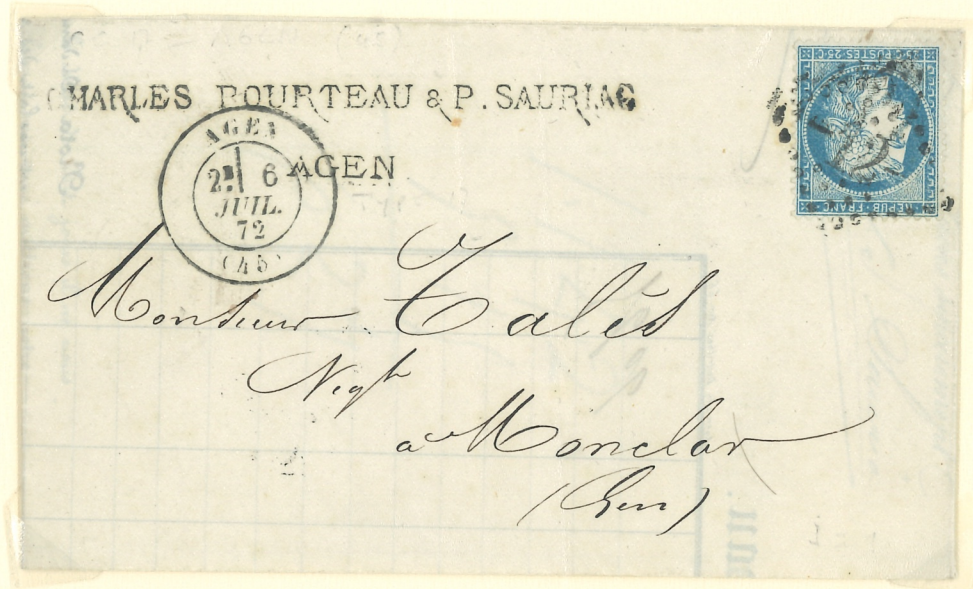 CHARLES POURTEAU & P. SAURIAC
AGEN
AGEN
2E 6
JUIL.
72
(45)
25 C. POSTES 25 C.
REPUB. FRANC.
Monsieur Talès
Negt
à Monclar
(Gers)